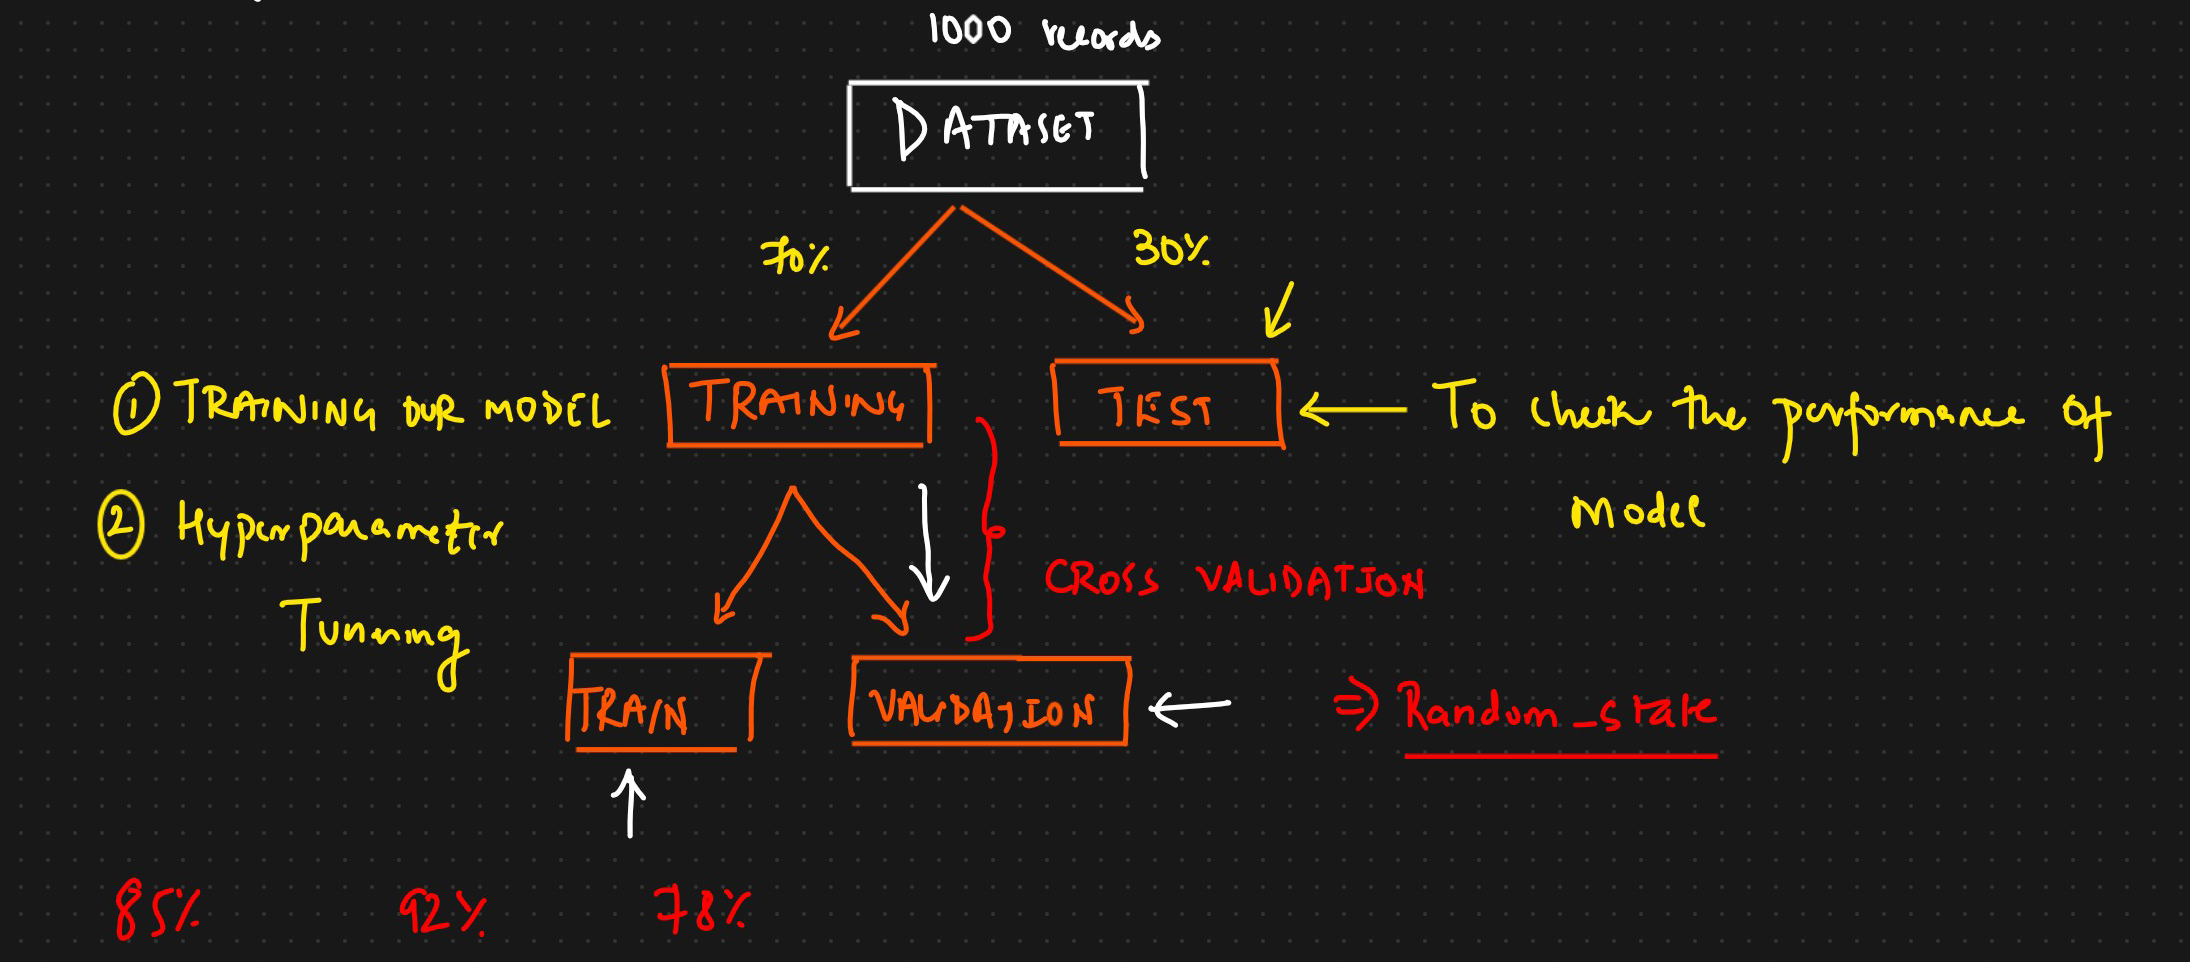 1000 records
DATASET
70%
30%
① TRAINING OUR MODEL
TRAINING
TEST
To check the performance of
Model
② Hyperparameter
Tunning
CROSS VALIDATION
TRAIN
VALIDATION
⇒ Random_state
85% 92% 78%